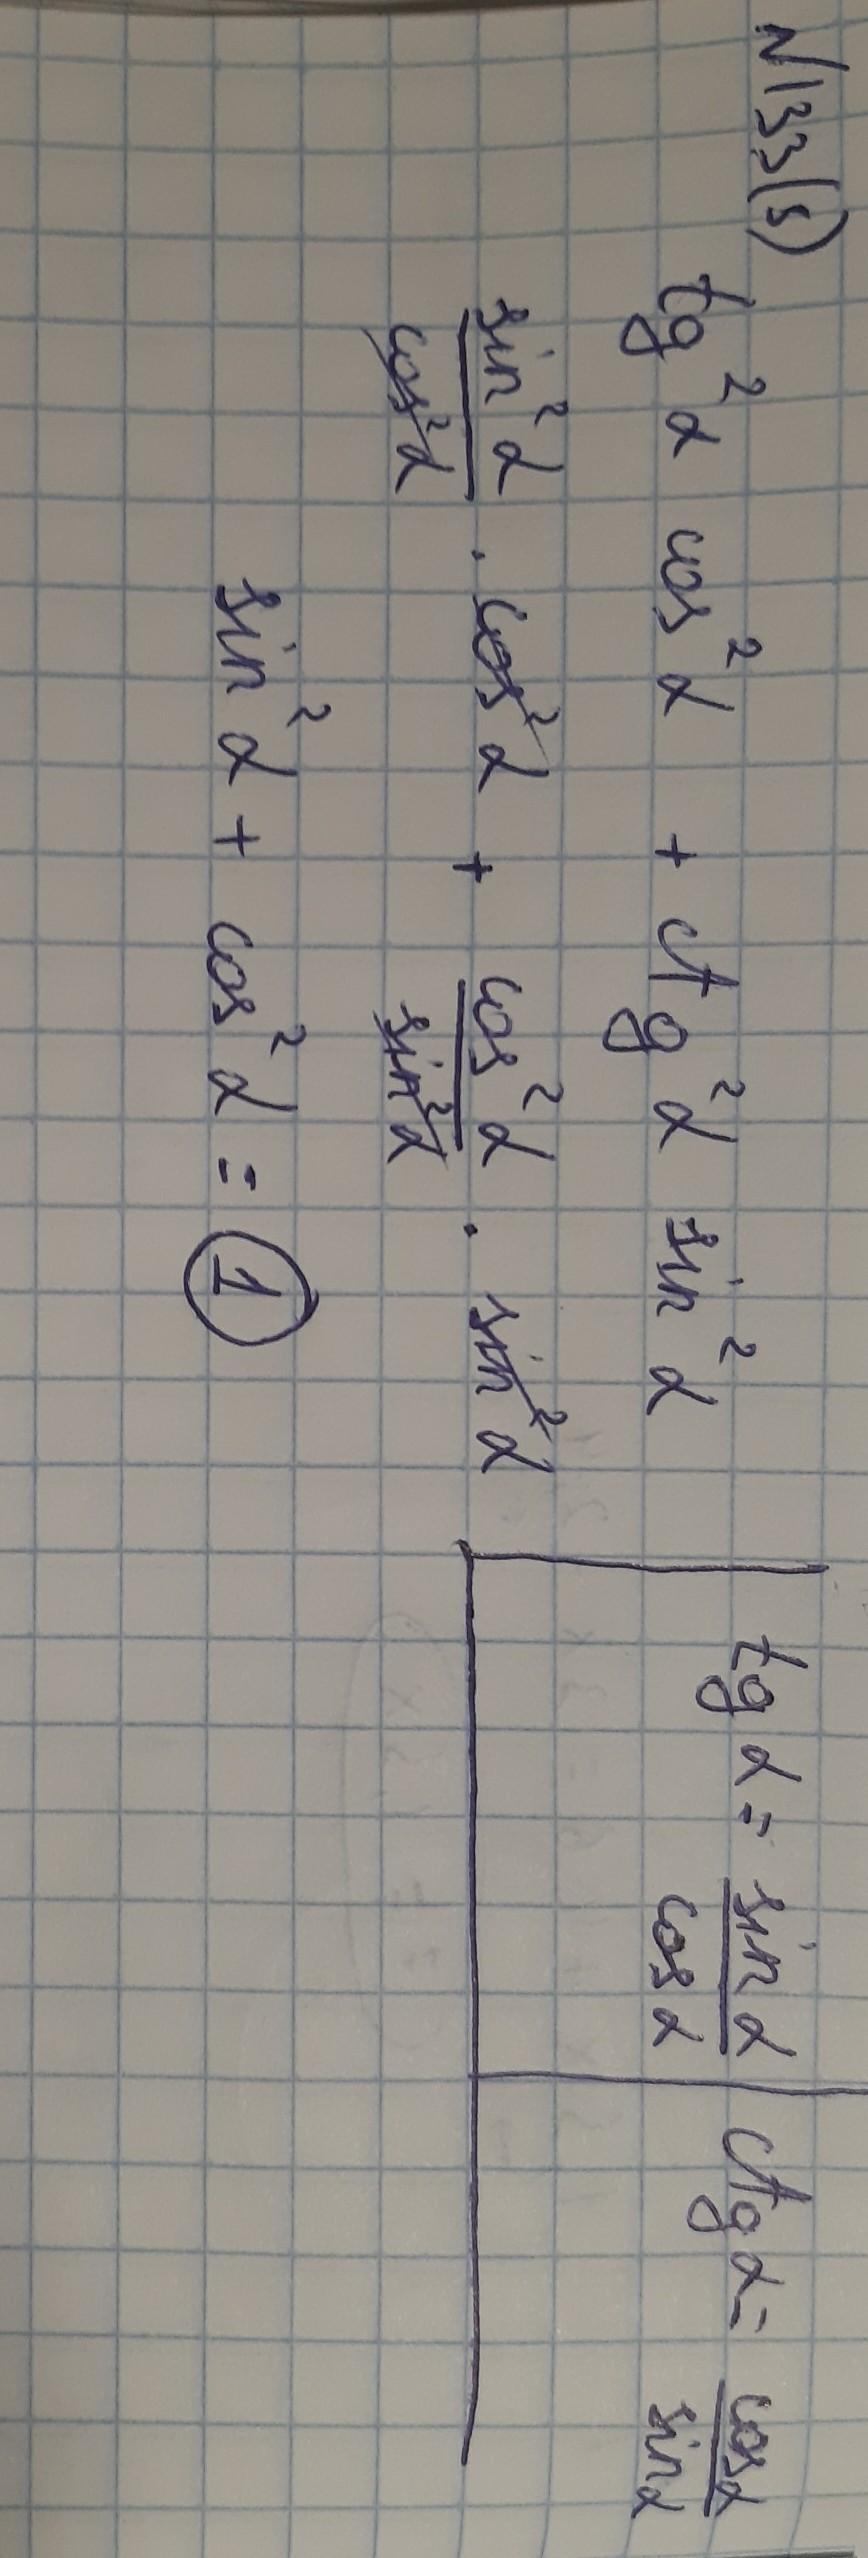 N133(5)
tg²α cos²α + ctg²α sin²α
sin²α/cos²α · cos²α + cos²α/sin²α · sin²α
sin²α + cos²α = 1
tgα = sinα/cosα
ctgα = cosα/sinα